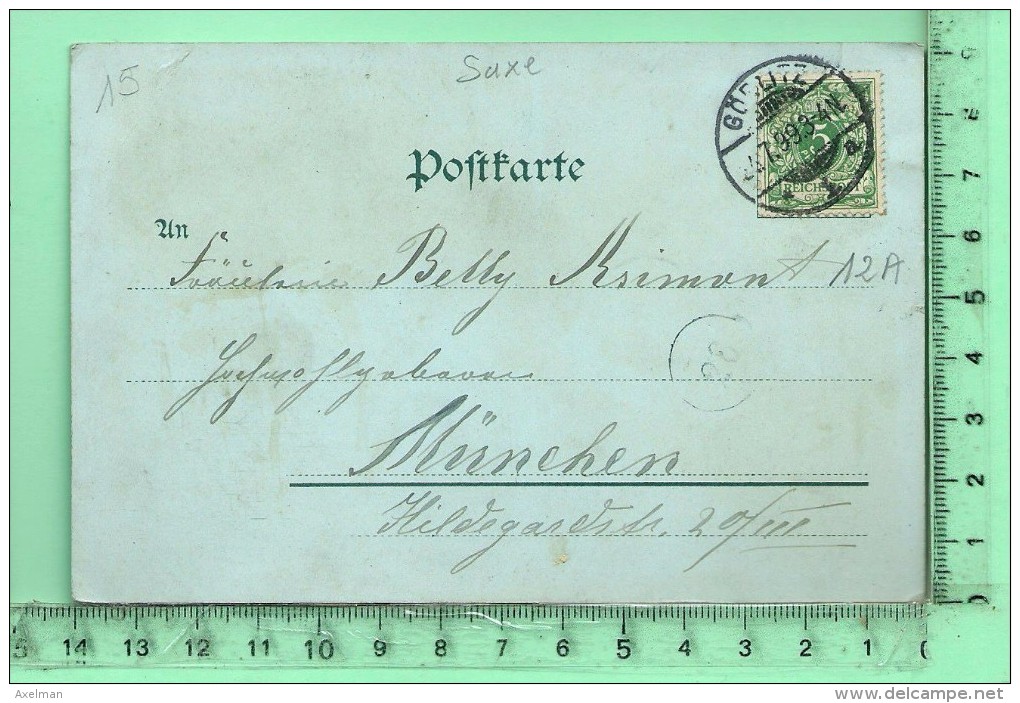 15
Saxe
GÖRLITZ
4.7.99.3-4N.
a
5
REICHSPOST
Postkarte
An
Fräulein Betty Krimont 12A
Hochwohlgeboren
München
Hildegardstr. 20/III
15 14 13 12 11 10 9 8 7 6 5 4 3 2 1 0
9 8 7 6 5 4 3 2 1 0
Axelman
www.delcampe.net